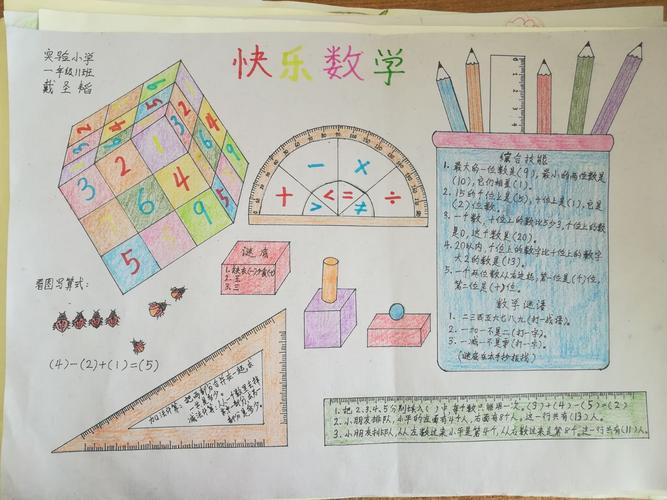 快乐数学
实验小学
一年级11班
戴圣韬
3 2 1
7 6 4
5 9
+ - × ÷
> < = <
谜底
2. 王
3. 三
看图写算式:
(4)-(2)+(1)=(5)
加法计算: 把两部分合并在一起
减法计算:
综合技能
1. 最大的一位数是(9), 最小的两位数是
(10), 它们相差(1)。
2. 15的个位上是(5), 十位上是(1), 它是
(2)位数。
3. 一个数, 十位上的数比5少3, 个位上的数
是0, 这个数是(20)。
4. 20以内, 个位上的数字比十位上的数字
大2的数是(13)。
5. 一个两位数从右边起, 第一位是(个)位,
第二位是(十)位。
数学谜语
1. 二三四五六七八九(打一成语)。
2. 一加一不是二(打一字)。
3. 一减一不是零(打一字)。
(谜底在本手抄报找)
1. 把2.3.4.5分别填入()中, 每个数只能用一次。(3)+(4)-(5)=(2)
2. 小朋友排队, 小华的左面有4个人, 右面有8个人, 这一行共有(13)人。
3. 小朋友排队, 从左数过来小华是第4个, 从右数过来是第8个, 这一行共有(11)人。